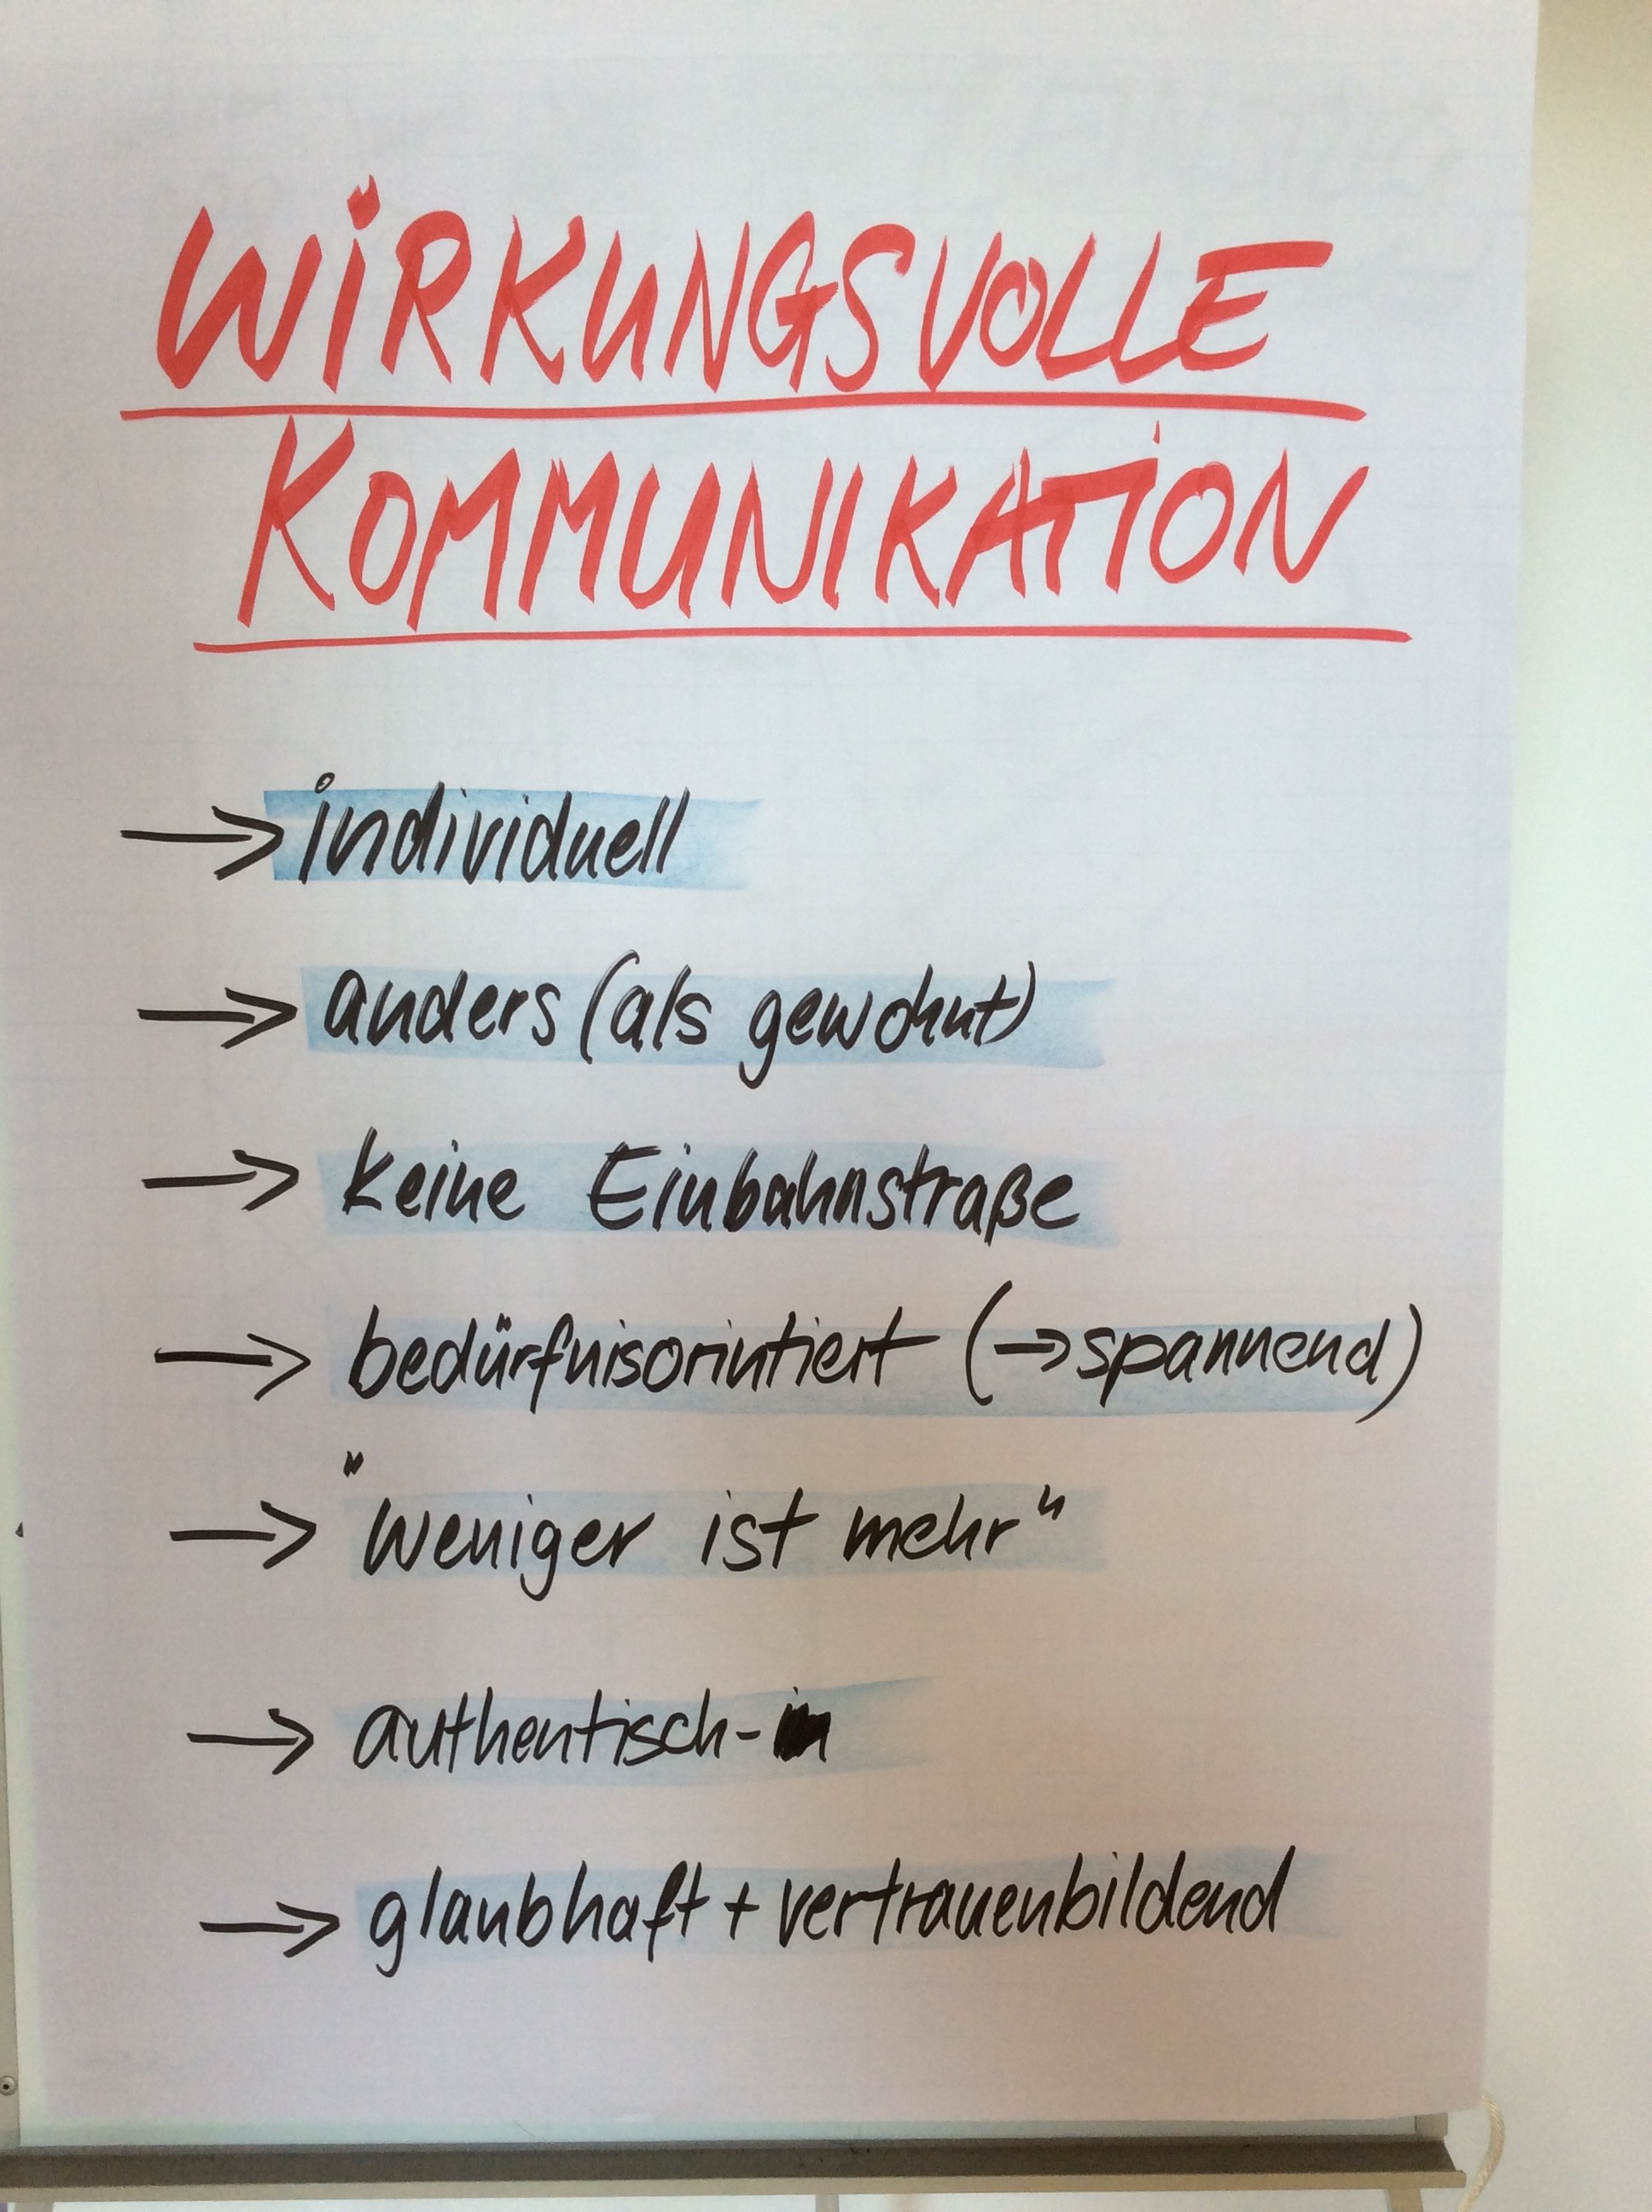 WIRKUNGSVOLLE
KOMMUNIKATION
→ individuell
→ anders (als gewohnt)
→ keine Einbahnstraße
→ bedürfnisorintiert (→ spannend)
→ "weniger ist mehr"
→ authentisch -
→ glaubhaft + vertrauenbildend